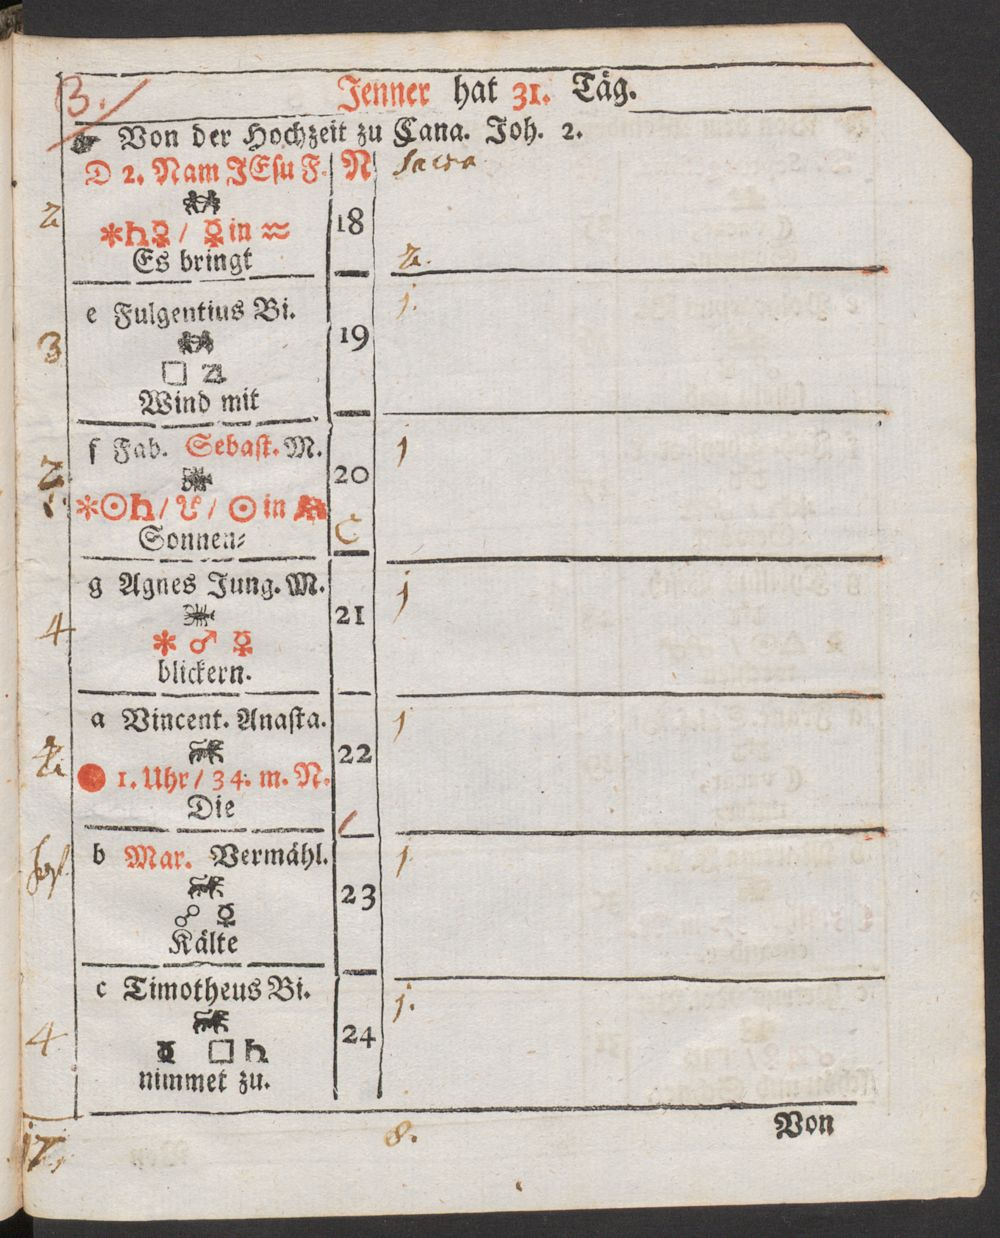 3.
Jenner hat 31. Täg.
☛ Von der Hochzeit zu Cana. Joh. 2.
D 2. Nam JEsu F. N
2 18
✱♄☿ / ☿ in ♒
Es bringt 2.
e Fulgentius Bi. j.
3 19
□ ♃
Wind mit
f Fab. Sebast. M. j
2 20
✱☉♄ / ☋ / ☉ in
Sonnen⸗ C
g Agnes Jung. M. j
21
4 ✱ ♂ ☿
blickern.
a Vincent. Anasta. j
22
1. Uhr / 34. m. N.
Die
b Mar. Vermähl. j
23
☍ ☿
Kälte
c Timotheus Bi. j.
4 24
□ ♄
nimmet zu.
Von
17. 8.